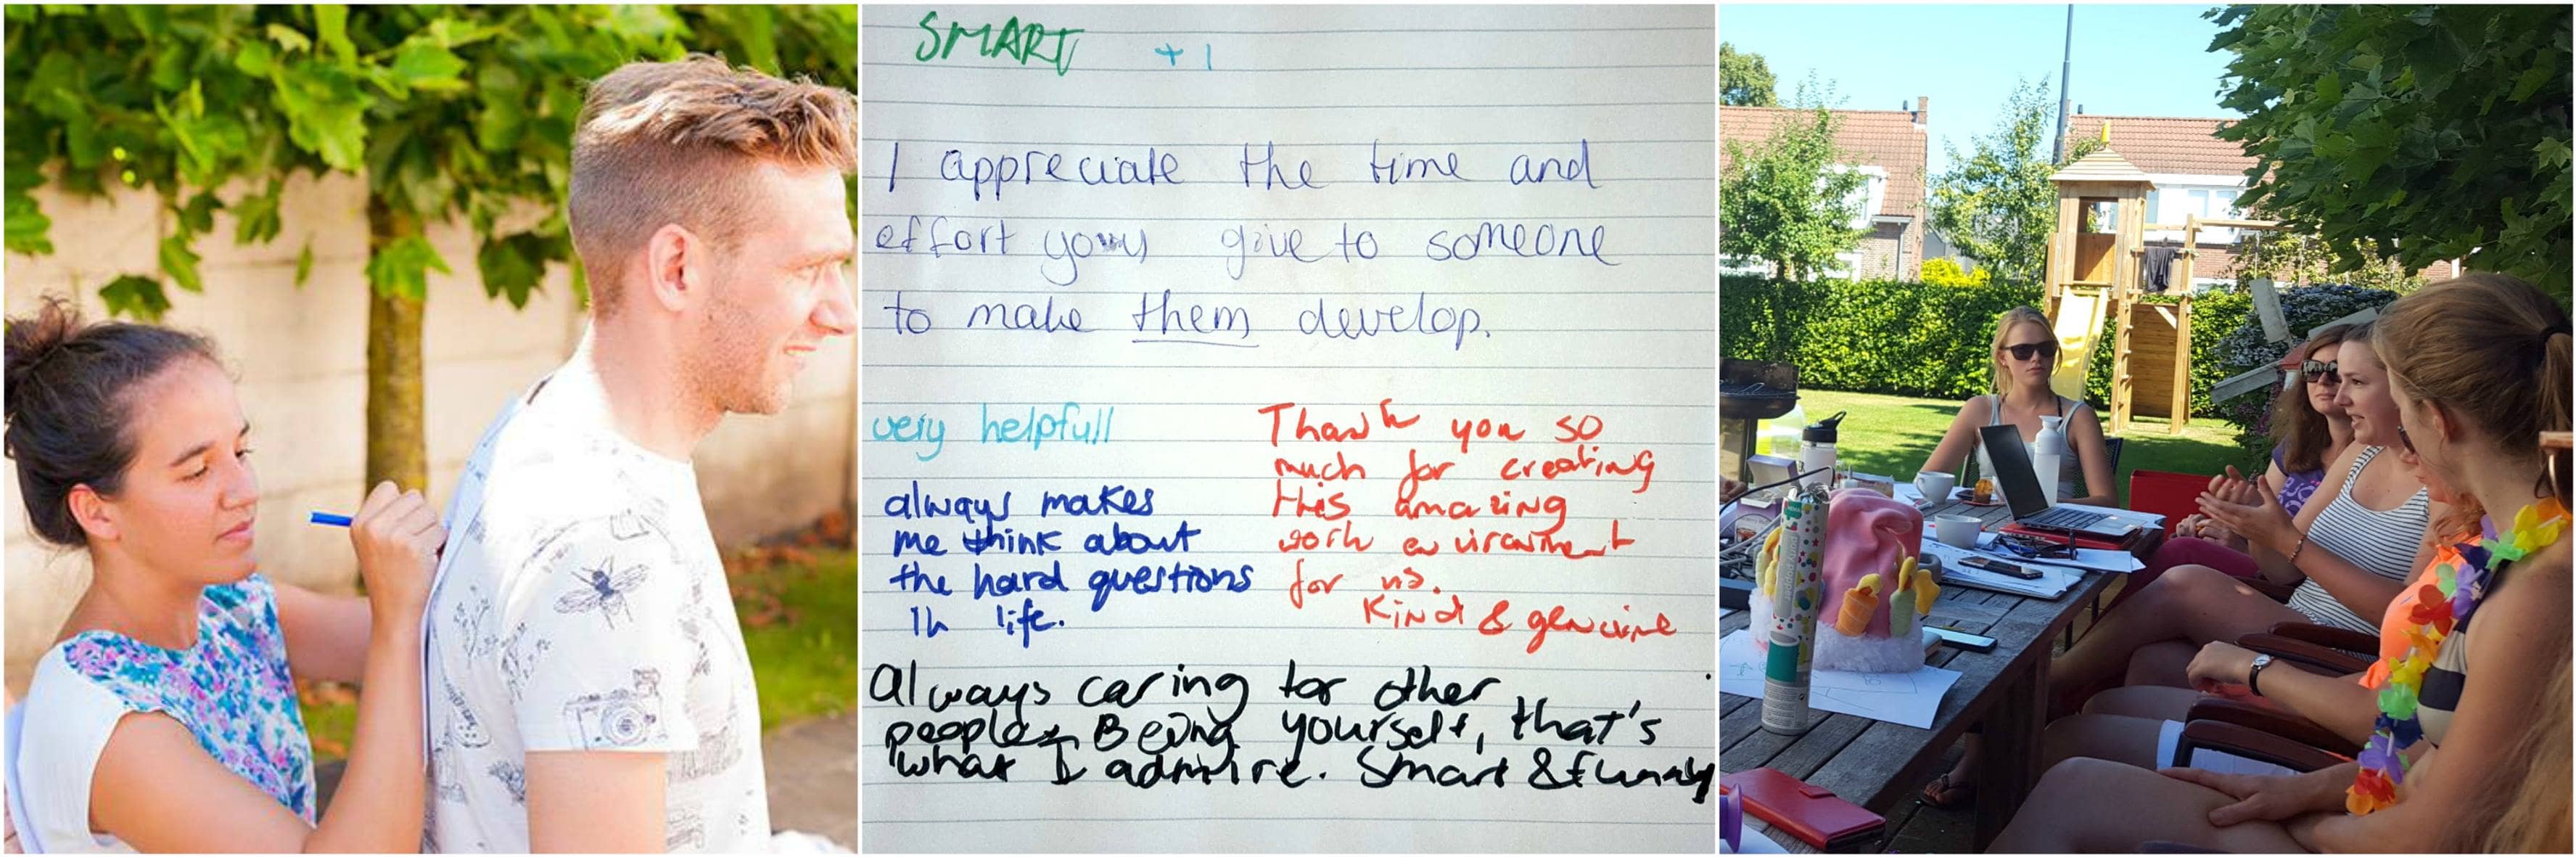 SMART +1
I appreciate the time and
effort you give to someone
to make them develop.
very helpfull
always makes
me think about
the hard questions
in life.
Thank you so
much for creating
this amazing
work environment
for us.
Kind & genuine
Always caring for other
people. Being yourself, that's
what I admire. Smart & funny